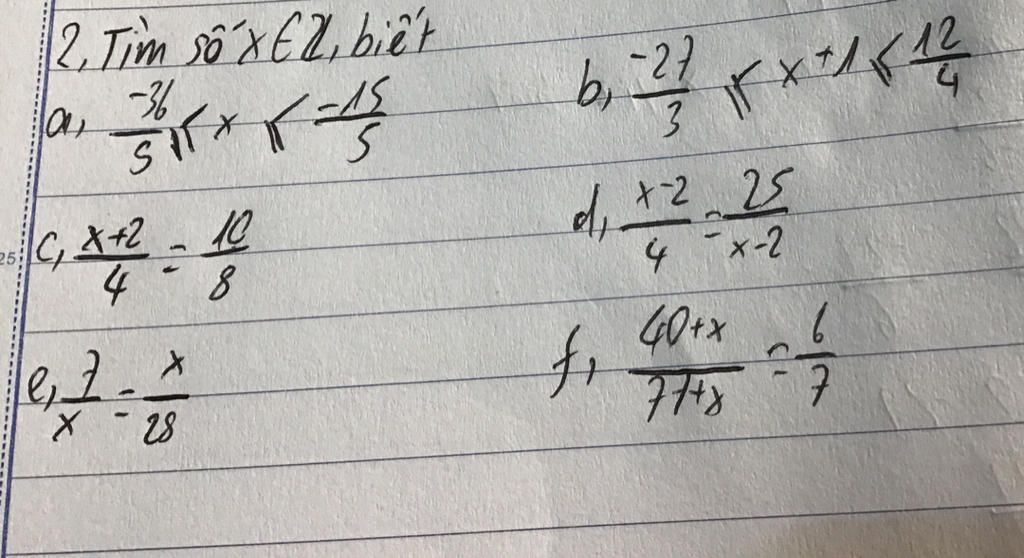 2, Tìm số x ∈ Z, biết
a, -36/5 ≤ x ≤ -15/5 b, -27/3 ≤ x +1 ≤ 12/4
c, x+2/4 = 10/8 d, x-2/4 = 25/x-2
25
e, 7/x = x/28 f, 40+x/77+x = 6/7